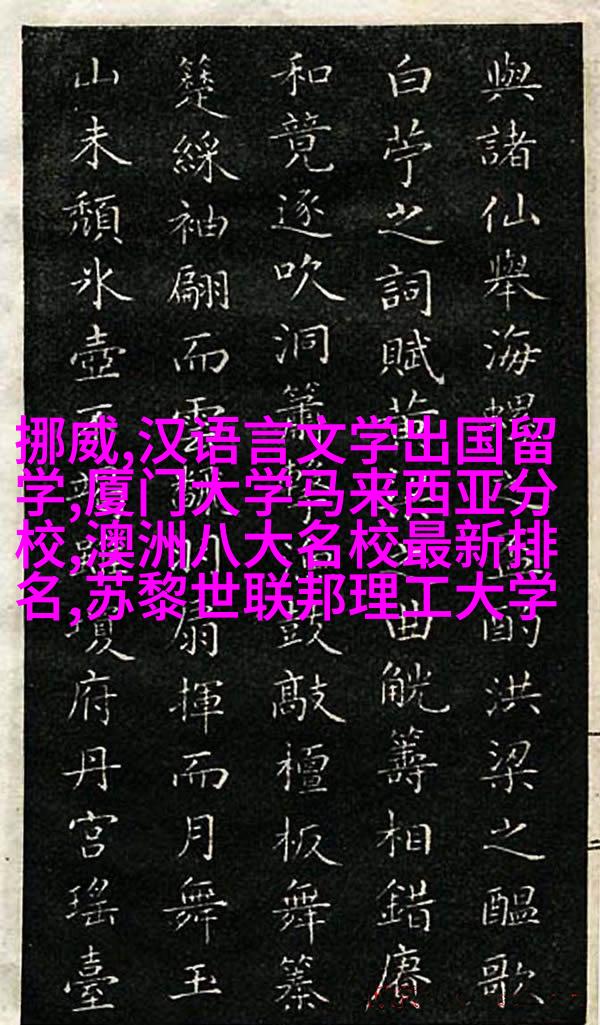 挪威,汉语言文学出国留
学,厦门大学马来西亚分
校,澳洲八大名校最新排
名,苏黎世联邦理工大学
與諸仙舉海螺之酌洪梁之醖歌
白苧之詞賦之曲觥籌相錯賡
和竟逐吹洞簫鼓敲檀板舞綦
綵袖翩而雲扇揮而月舞玉
山未頹氷壺瓊府丹宮瑤臺